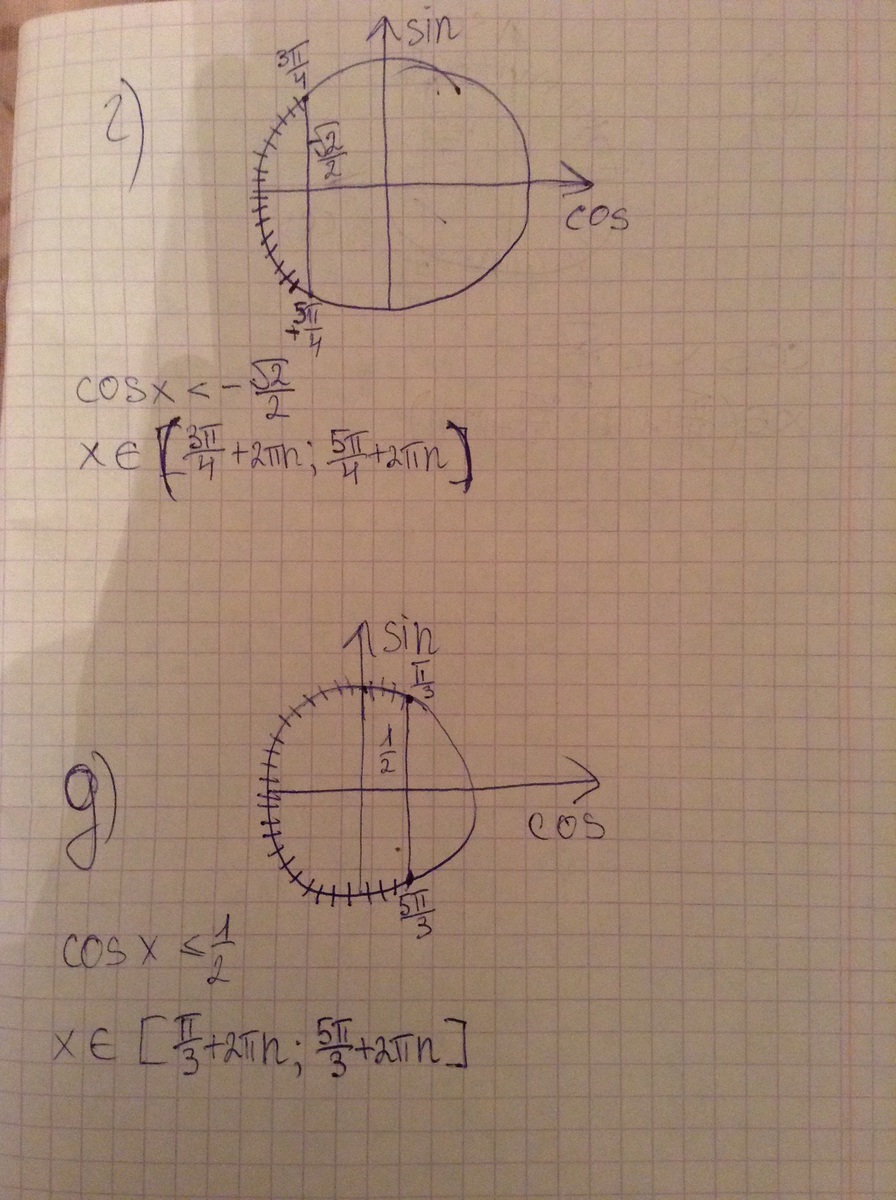 г)
sin
3π/4
√2/2
cos
5π/4
cosx < -√2/2
x ∈ (3π/4+2πn; 5π/4+2πn)
sin
π/3
1/2
д)
cos
5π/3
cosx ≤ 1/2
x ∈ [π/3+2πn; 5π/3+2πn]